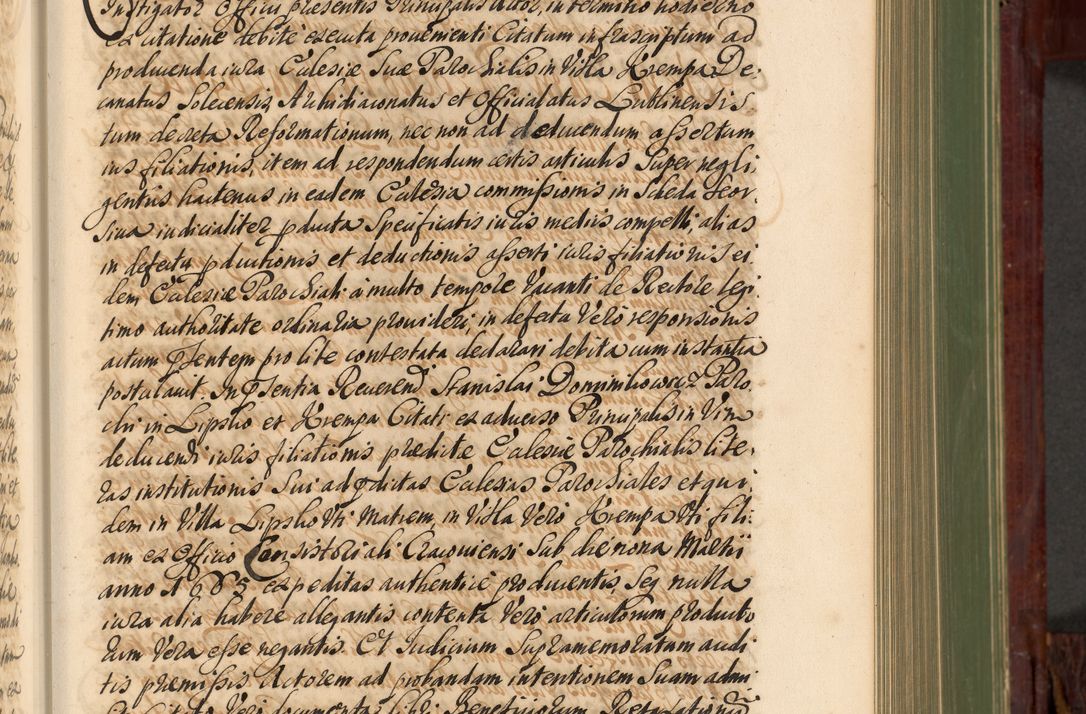 Instigator Officii præsentis Principalis Actor, in termino hodierno
ex citatione debite executa provenienti Citatum infrascriptum ad
producenda iura Ecclesiæ Suæ Parochialis in Villa Krempa De-
canatus Solecensis, Archidiaconatus et Officialatus Lublinensis
tum decreta Reformationum, nec non ad deducendum assertum
ius filiationis, item ad respondendum certis articulis super negli-
gentiis hactenus in eadem Ecclesia commissionis in Scheda seor-
siva iudicialiter pducta Specificatis iuris mediis compelli, alias
in defectu pductionis et deductionis asserti iuris filiationis ei
dem Ecclesiæ Parochiali a multo tempore Vacanti de Rectore legi-
timo authoritate ordinaria provideri, in defectu Verò responsionis
actum psentem pro lite contestata declarari debita cum instantia
postulavit. In psentia Reverend Stanislai Dominikowicz Paro
chi in Lipsko et Krempa Citati ex adverso Principalis in Vim
deducendi iuris filiationis prædictæ Ecclesiæ Parochialis lite-
ras institutionis Sui ad pdictas Ecclesias Parochiales et qui
dem in Villa Lipsko Vti Matrem, in Villa Verò Krempa Vti fili-
am ex Officio Consistoriali Cracoviensi Sub die nona Martii
anno 1685 expeditas authenticè producentis, Seq nulla
iura alia habere allegantis contenta Verò articulorum producto
rum Vera esse negantis. Et Iudicium Supramemoratum audi
tis præmissis Actorem ad probandam intentionem Suam admi
Citato Verò documenta libri Beneficiorum Retaxationum